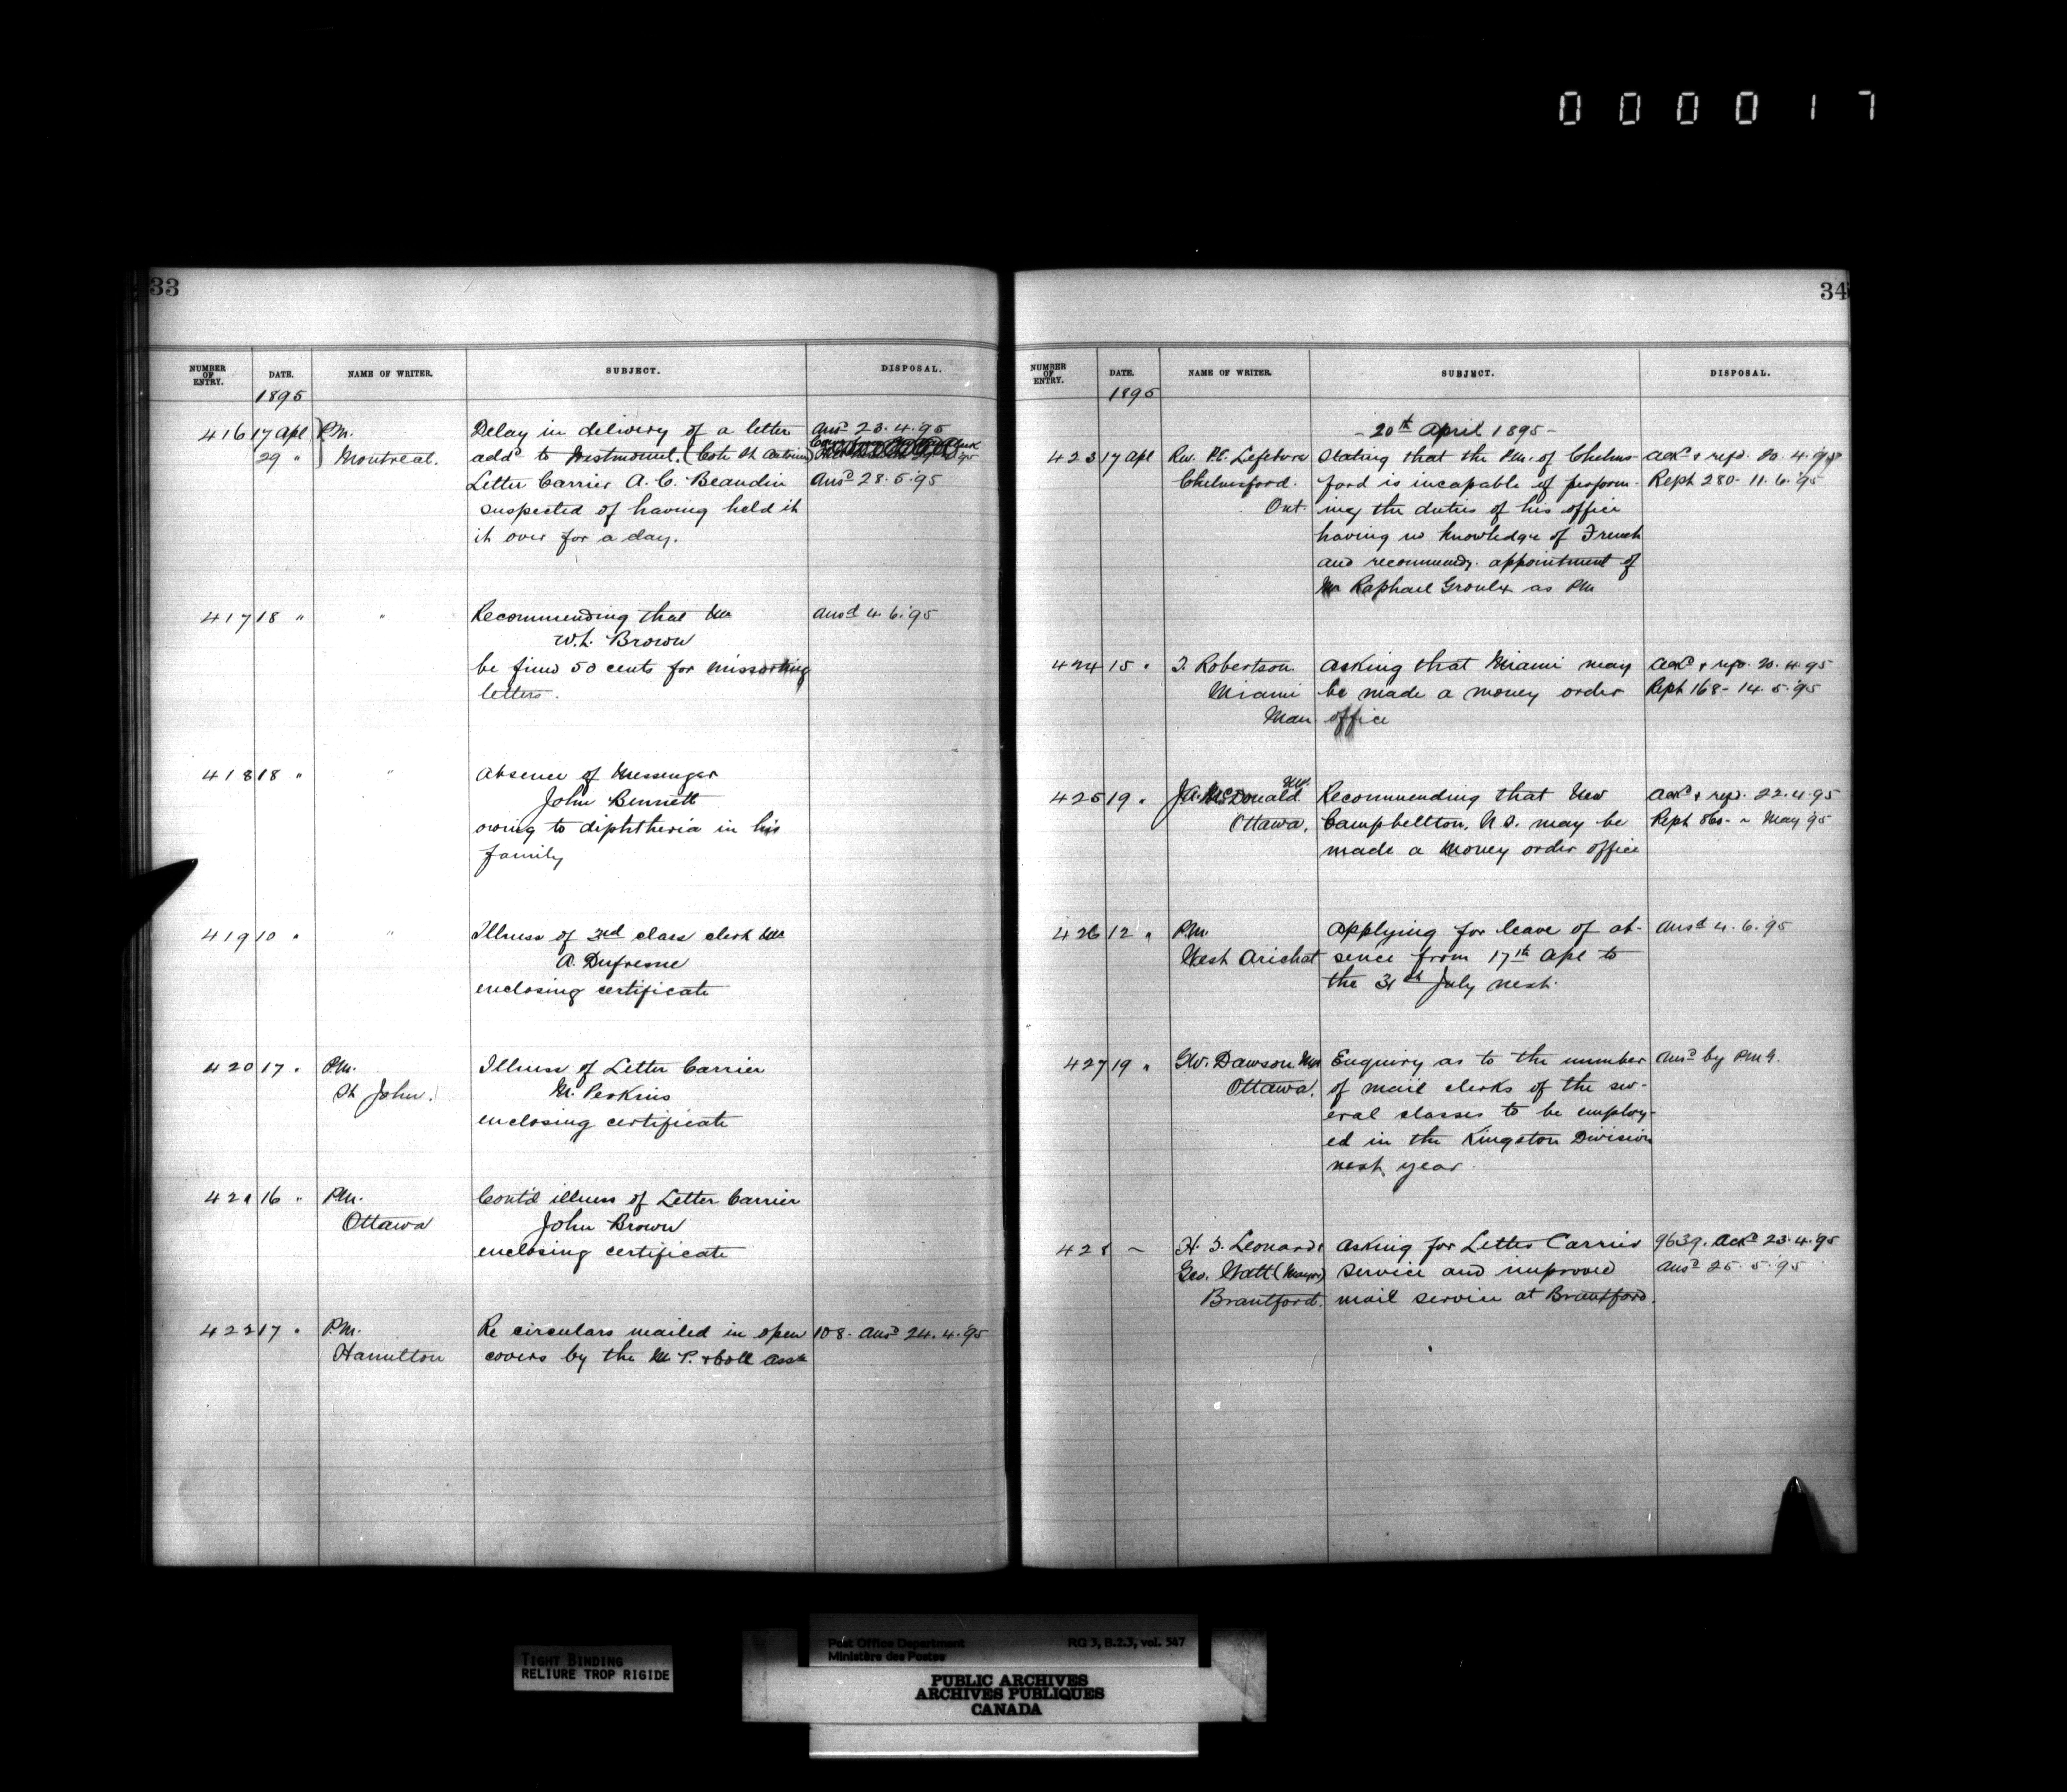 0 0 0 0 1 7
33
NUMBER OF ENTRY. DATE. NAME OF WRITER. SUBJECT. DISPOSAL.
1895
416 17 Apl P.M. Delay in delivery of a letter Ansd 23.4.95
29 " Montreal. add'd to Westmount. (Cote St Antoine)
Letter Carrier A. C. Beaudin Ansd 28.5.'95
suspected of having held it
it over for a day.
417 18 " " Recommending that Mr Ansd 4.6.'95
W.L. Brown
be fined 50 cents for missorting
letters.
418 18 " " Absence of Messenger
John Bennett
owing to diphtheria in his
family
419 10 " " Illness of 3rd class clerk Mr
A. Dufresne
enclosing certificate
420 17 " P.M. Illness of Letter Carrier
St John. M. Perkins
enclosing certificate
421 16 " P.M. Cont'd illness of Letter Carrier
Ottawa John Brown
enclosing certificate
422 17 " P.M. Re circulars mailed in open 108. Ansd 24.4.'95
Hamilton covers by the M. P. & Coll Assn
34
NUMBER OF ENTRY. DATE. NAME OF WRITER. SUBJECT. DISPOSAL.
1895
- 20th April 1895 -
423 17 Apl Rev. P.E. Lefebvre Stating that the P.M. of Chelms- Ackd & refd. 20.4.95
Chelmsford. ford is incapable of perform- Rept 280 - 11.6.'95
Ont. ing the duties of his office
having no knowledge of French
and recommendg. appointment of
Mr Raphael Groulx as PM
424 15 " T. Robertson Asking that Miami may Ackd & refd. 20.4.95
Miami be made a money order Rept 168 - 14.5.'95
Man. office
425 19 " J.A. McDonald M.P. Recommending that New Ackd & refd. 22.4.95
Ottawa. Campbellton, N.S. may be Rept 860 - ~ May '95
made a money order office
426 12 " P.M. Applying for leave of ab- Ansd 4.6.'95
West Arichat sence from 17th Apl to
the 31st July next.
427 19 " G.W. Dawson. M.P. Enquiry as to the number Ansd by P.M.G.
Ottawa. of mail clerks of the sev-
eral classes to be employ-
ed in the Kingston Division
next year.
428 ~ H. F. Leonard & Asking for Letter Carrier 9639. Ackd 23.4.95
Geo. Watt (Mayor) service and improved Ansd 25.5.'95
Brantford. mail service at Brantford.
TIGHT BINDING
RELIURE TROP RIGIDE
Post Office Department RG 3, B.2.3, vol. 547
Ministère des Postes
PUBLIC ARCHIVES
ARCHIVES PUBLIQUES
CANADA